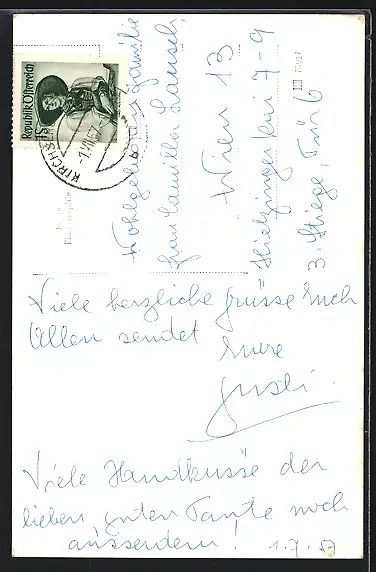 Republik Österreich
1S
KIRCHB
-1.VII.57
Wohlgeboren Familie
Frau Camilla Lausch
Wien 13
Hietzinger Kai 7-9
3. Stiege, Tür 6
Viele herzliche Grüsse Euch
Allen sendet Eure
Gusti.
Viele Handküsse der
lieben, guten Tante noch
ausserdem! 1.7.57